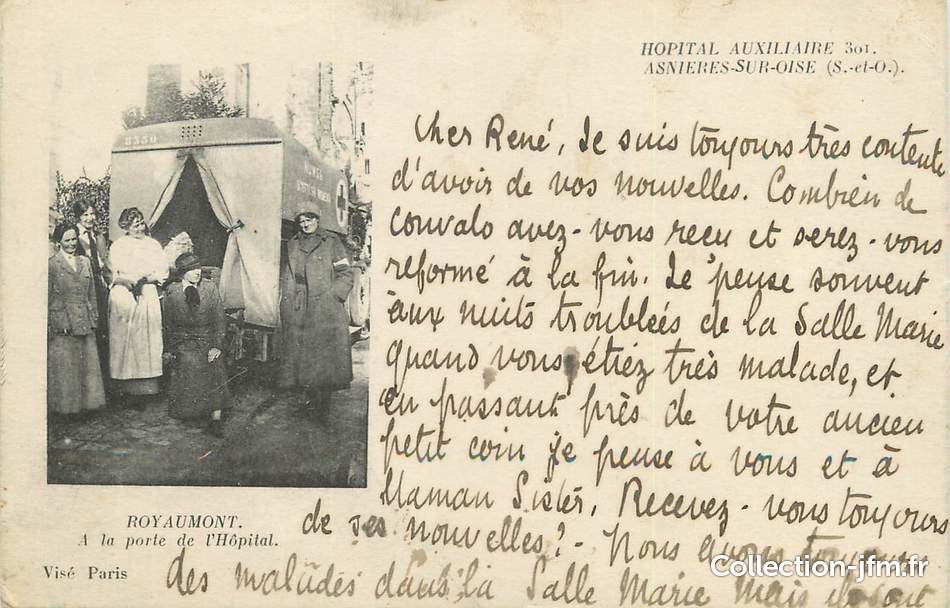 HOPITAL AUXILIAIRE 301.
ASNIERES-SUR-OISE (S.-et-O.).
Cher René, Je suis toujours très contente
d'avoir de vos nouvelles. Combien de
convalo avez-vous reçu et serez-vous
reformé à la fin. Je pense souvent
aux nuits troublées de la Salle Marie
quand vous étiez très malade, et
en passant près de votre ancien
petit coin je pense à vous et à
Maman Sister, Recevez-vous toujours
de ses nouvelles? - Nous avons toujours
des malades dans la Salle Marie mais
ROYAUMONT.
A la porte de l'Hôpital.
Visé Paris
Collection-jfm.fr